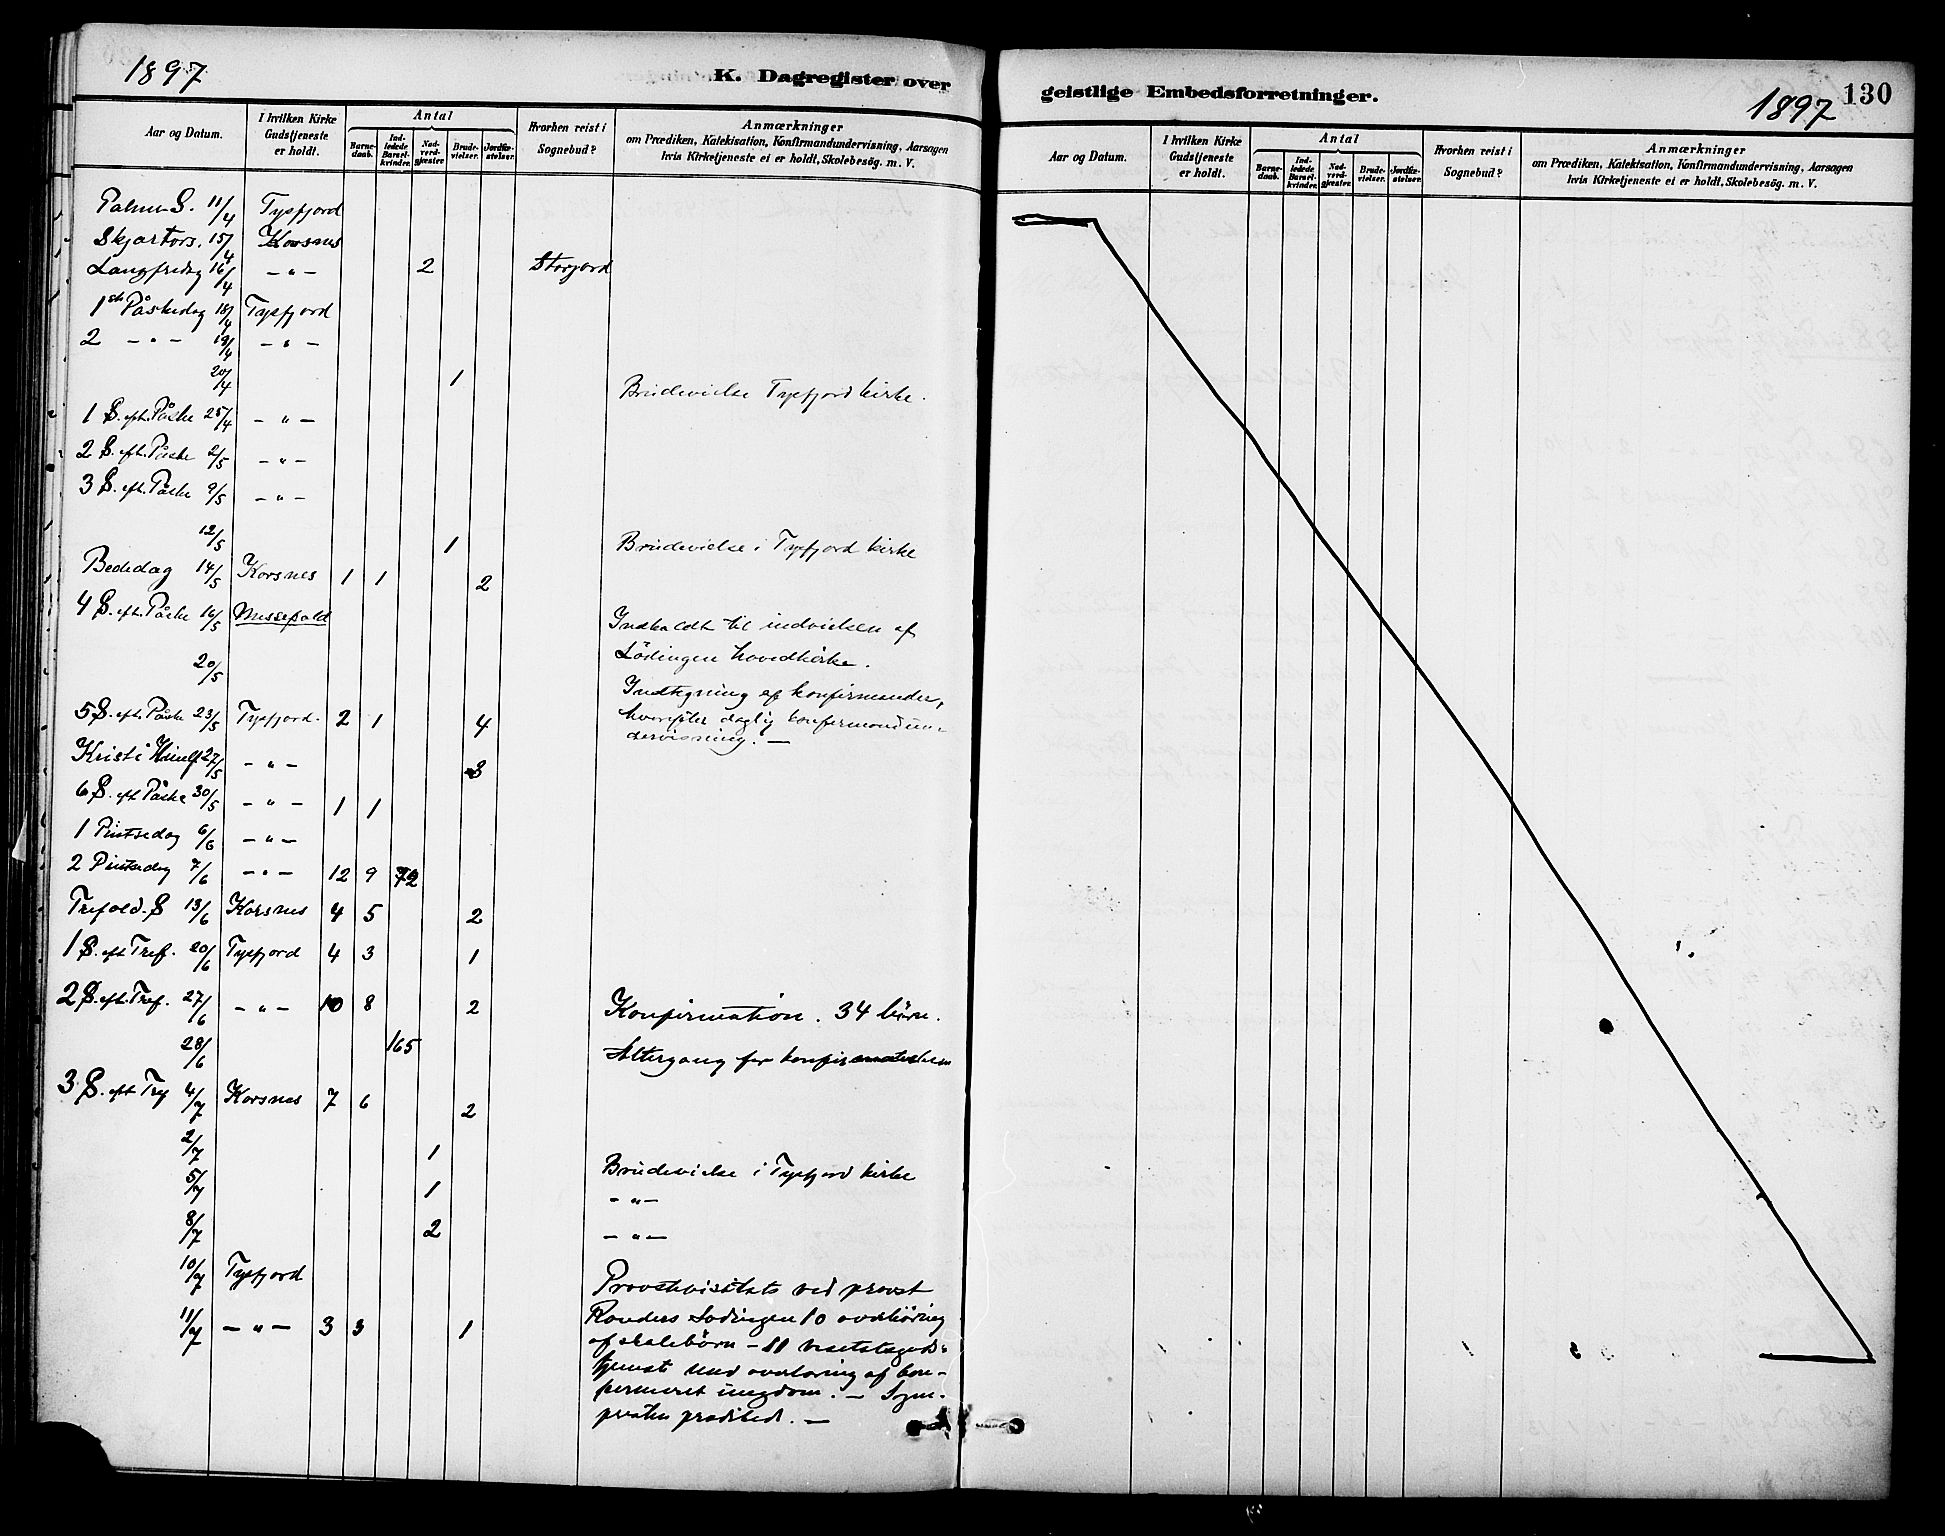 1897
K. Dagregister over
Aar og Datum.
I hvilken Kirke Gudstjeneste er holdt.
Antal
Barnedaab.
Indledede Barselkvinder.
Nadverdgjæster
Brudevielser.
Jordfæstelser.
Hvorhen reist i Sognebud?
Anmærkninger
om Prædiken, Katekisation, Konfirmandundervisning, Aarsagen
hvis Kirketjeneste ei er holdt, Skolebesøg. m. V.
Palme S. 11/4 Tysfjord
Skjærtors. 15/4 Korsnes
Langfredag 16/4 - " - 2 Storjord
1ste Påskedag 18/4 Tysfjord
2 - " - 19/4 - " -
20/4 1 Brudevielse Tysfjord kirke.
1 S. eft. Påske 25/4 - " -
2 S. eft. Påske 2/5 - " -
3 S. eft. Påske 9/5 - " -
12/5 1 Brudevielse i Tysfjord kirke
Bededag 14/5 Korsnes 1 1 2
4 S. eft. Påske 16/5 Messefald Indkaldt til indvielsen af
Lödingen hovedkirke.
20/5 Indtegning af konfirmander,
5 S. eft. Påske 23/5 Tysfjord. 2 1 4 hvorefter daglig konfirmandun-
dervisning. —
Kristi Himelf 27/5 - " - 3
6 S. eft Påske 30/5 - " - 1 1
1 Pintsedag 6/6 - " -
2 Pintsedag 7/6 - " - 12 9 72
Trefold. S 13/6 Korsnes 4 5 2
1 S. eft Tref. 20/6 Tysfjord 4 3 1
2 S. eft. Tref. 27/6 - " - 10 8 2 Konfirmation. 34 börn.
28/6 165 Altergang for konfirmanterne
3 S. eft Tref 4/7 Korsnes 7 6 2
2/7 1 Brudevielse i Tysfjord kirke
5/7 1 - " -
8/7 2 - " -
10/7 Tysfjord Provstevisitats ved provst
11/7 - " - 3 3 1 Randers Lödingen 10 overhöring
af skolebörn - 11 visitatsguds-
tjenest med overhöring af kon-
firmeret ungdom. — Sogne-
presten prædiked. —
geistlige Embedsforretninger.
1897
130
Aar og Datum.
I hvilken Kirke Gudstjeneste er holdt.
Antal
Barnedaab.
Indledede Barselkvinder.
Nadverdgjæster.
Brudevielser.
Jordfæstelser.
Hvorhen reist i Sognebud?
Anmærkninger
om Prædiken, Katekisation, Konfirmandundervisning, Aarsagen
hvis Kirketjeneste ei er holdt, Skolebesøg. m. V.